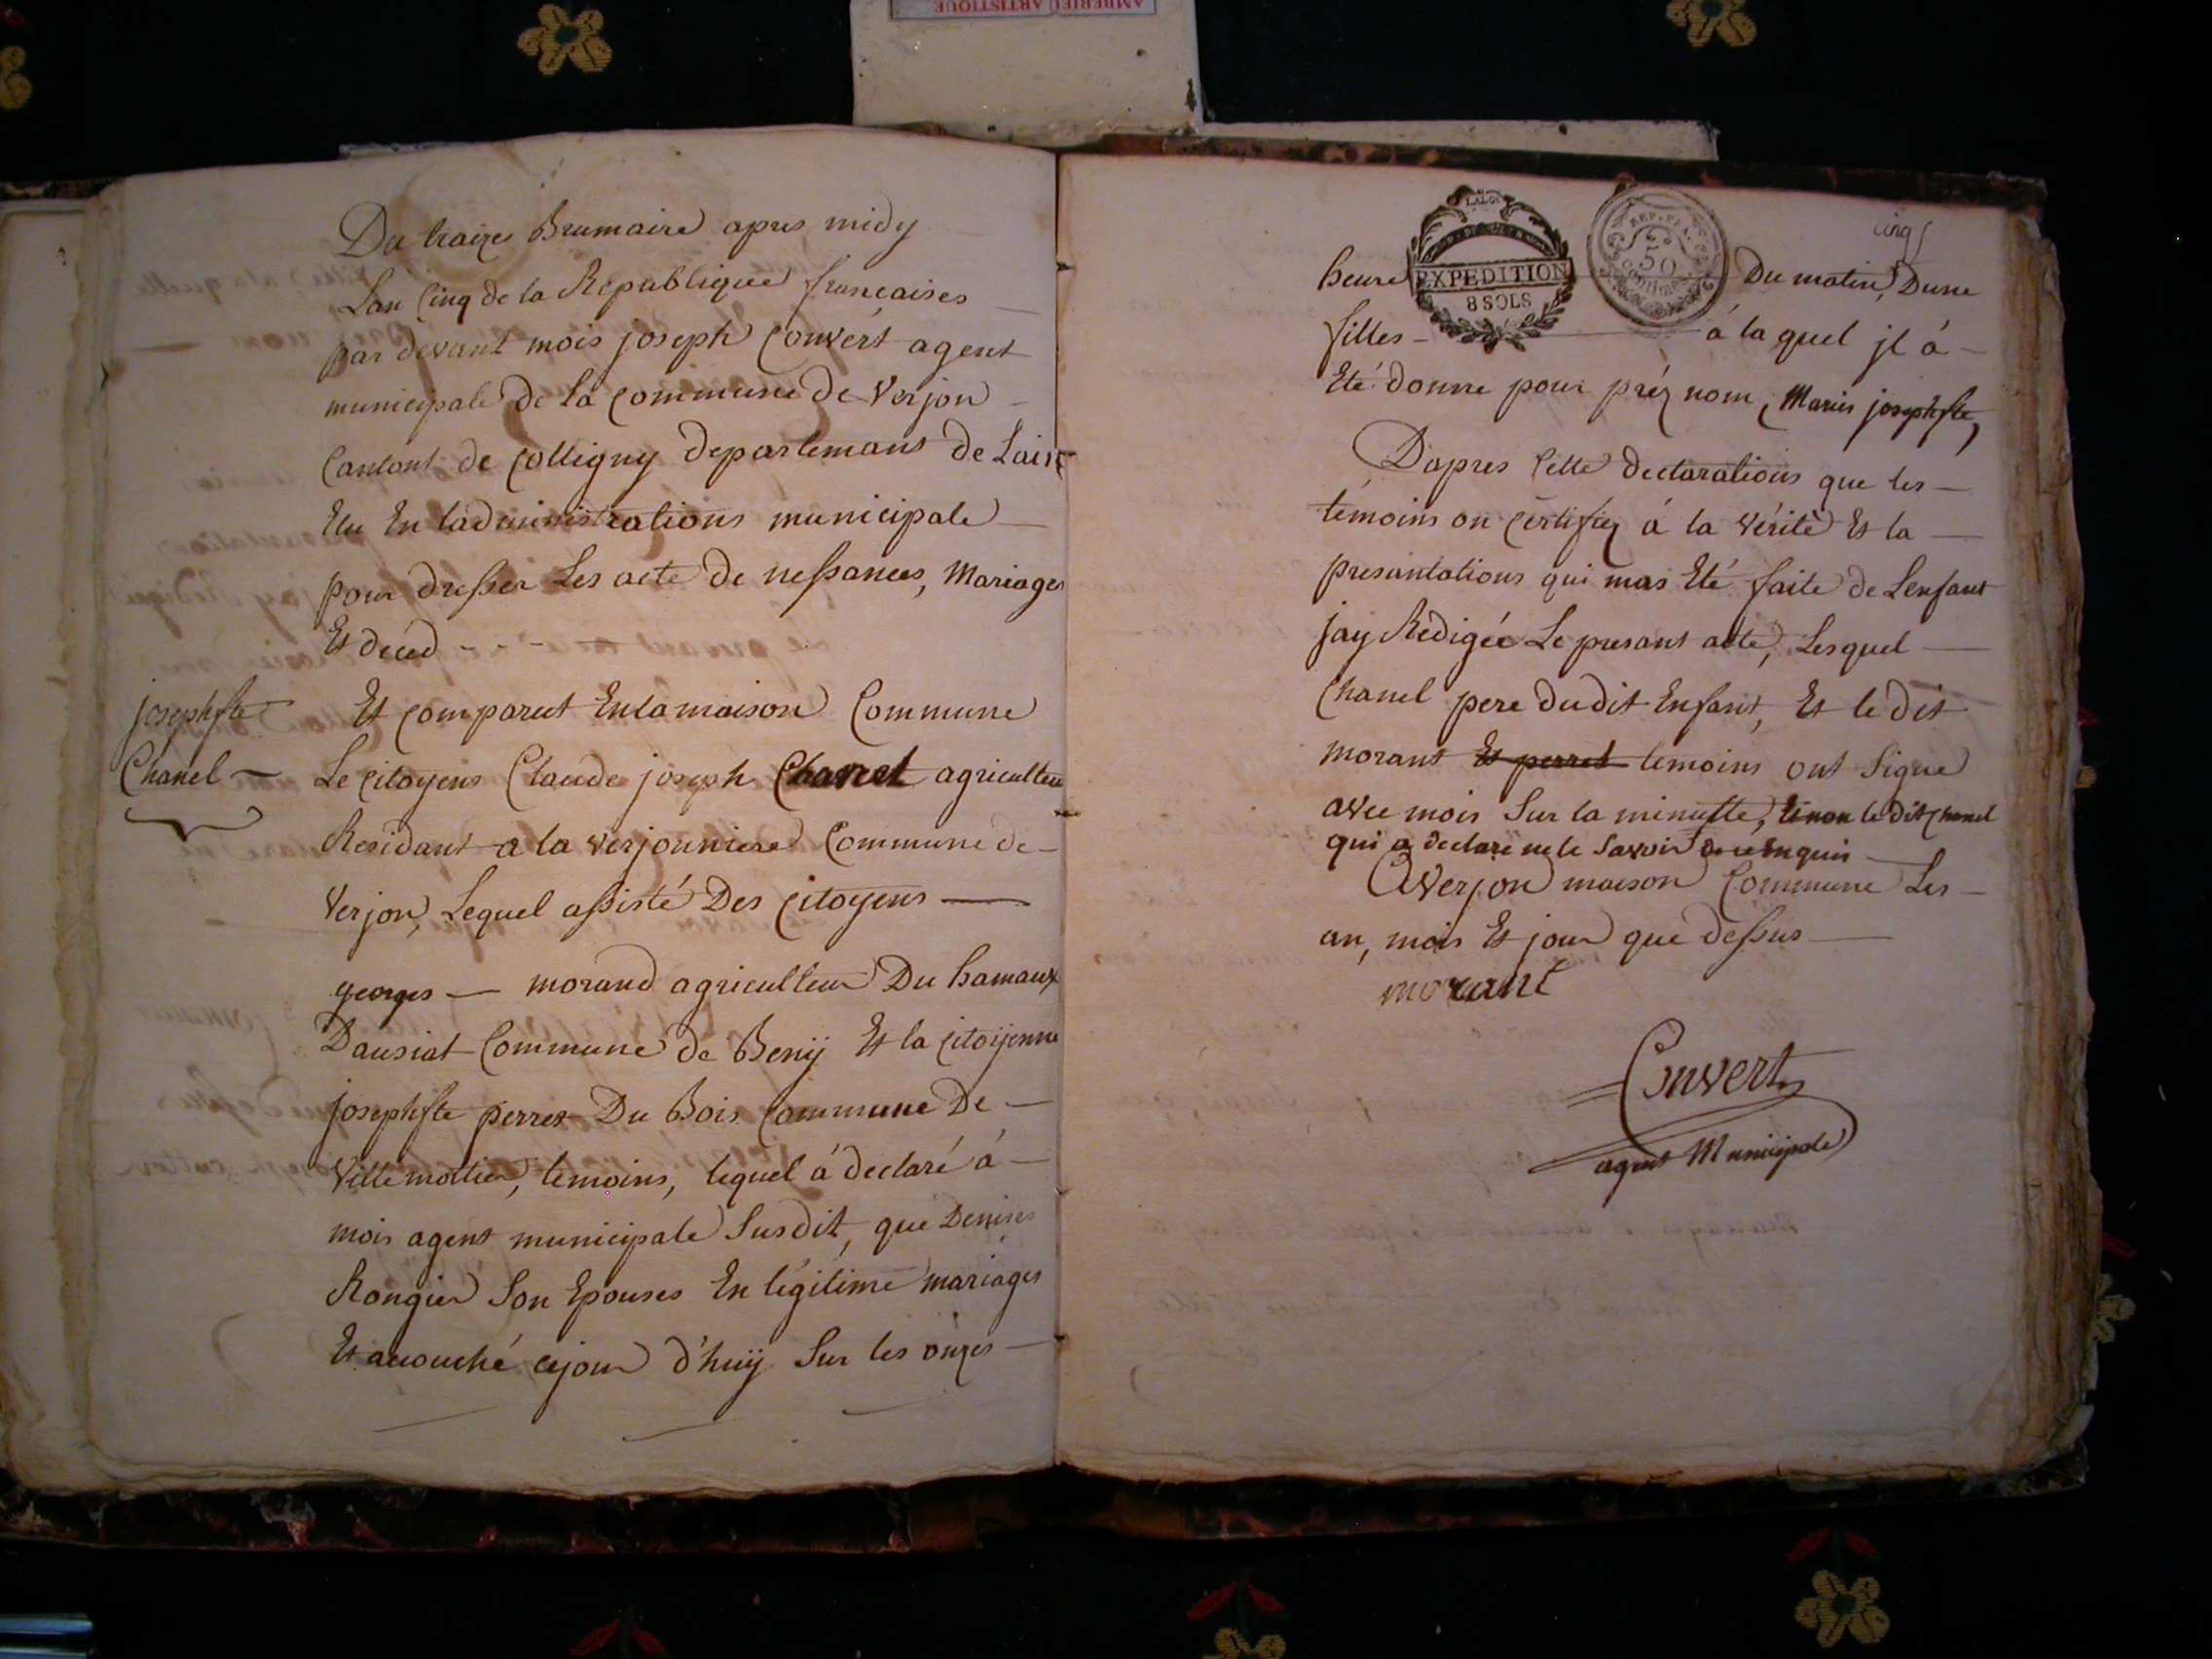 AMBERIEU ARTISTIQUE
Du traize Brumaire apres midy
Lan Cinq de la Republique francaises
par devant mois joseph Convert agent
municipale de la Commune de Verjon
Cantont de Colligny departemans de Lain
Elu En ladministrations municipale
pour dresser Les acte de nessances, Mariages
Et deced - - -
josephste
Chanel
Et comparut En la maison Commune
Le Citoyens Claude joseph Chanel agriculteur
Residant a la verjonniere Commune de
Verjon, Lequel assisté Des Citoyens
georges — morand agriculteur Du hamaux
Dausiat Commune de Benÿ Et la Citoÿenne
josephste perret Du Bois Commune De
Villemottier, temoins, lequel á declaré á
mois agent municipale Susdit, que Denises
Rongier Son Epouses En légitime mariages
Et acouché cejour d'huÿ Sur les onzes
cinq
LA LOI
EXPEDITION
8 SOLS
REP. FRA.
50
centimes
heure Du matin, Dune
filles - á la quel jl á
Eté donne pour préz nom, Maries josephste,
Dapres Cette declarations que les
témoins on Certifiez á la vérité Et la
presantations qui mas Eté faite de Lenfant
jay Redigée Le presant acte, Lesquel
Chanel pere dudit Enfant, Et le dit
morant Et perret temoins ont Signe
avec mois Sur la minutte, sinon le dit Chanel
qui a declare ne le Savoir de ce Enquis
A Verjon maison Commune Les
an, mois Et jour que dessus
morant
Convert
agent Municipale